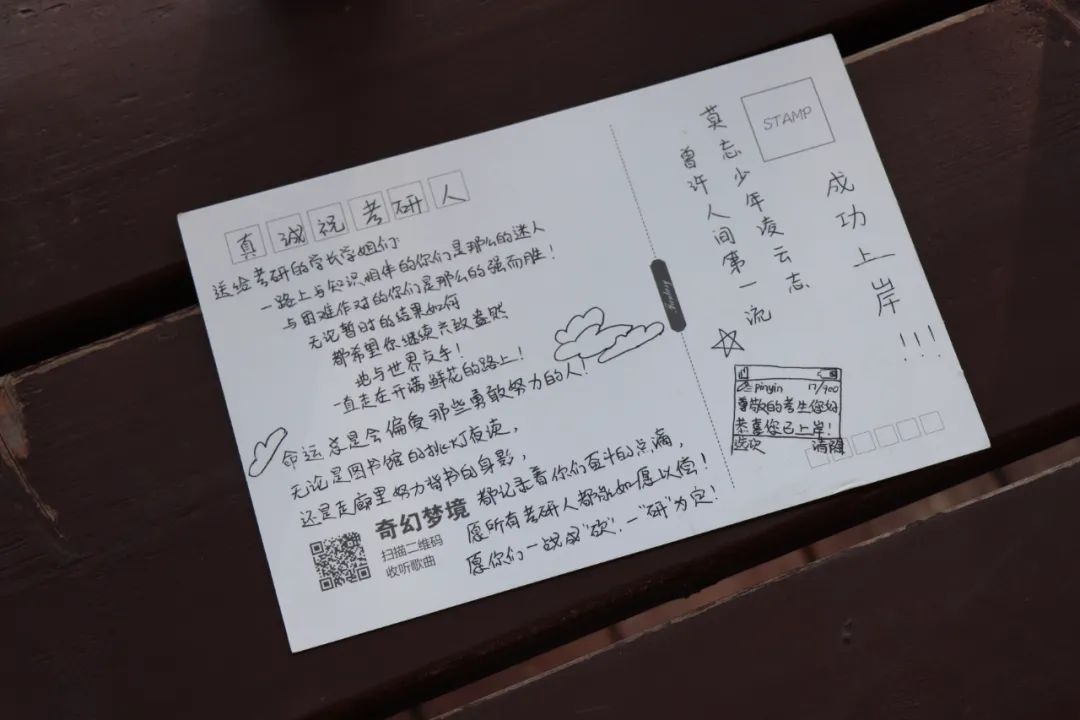 真诚祝考研人
送给考研的学长学姐们
一路上与知识相伴的你们是那么的迷人
与困难作对的你们是那么的强而胜！
无论暂时的结果如何
都希望你继续兴致盎然
地与世界交手！
一直走在开满鲜花的路上！
命运总是会偏爱那些勇敢努力的人！
无论是图书馆的挑灯夜读，
还是走廊里努力背书的身影，
都记录着你们奋斗的点滴，
愿所有考研人都能如愿以偿！
愿你们一战成“砍”，一“研”为定！
奇幻梦境
扫描二维码
收听歌曲
STAMP
莫忘少年凌云志
曾许人间第一流
成功上岸!!!
pinyin 17/900
尊敬的考生您好
恭喜您已上岸！
选次 清除